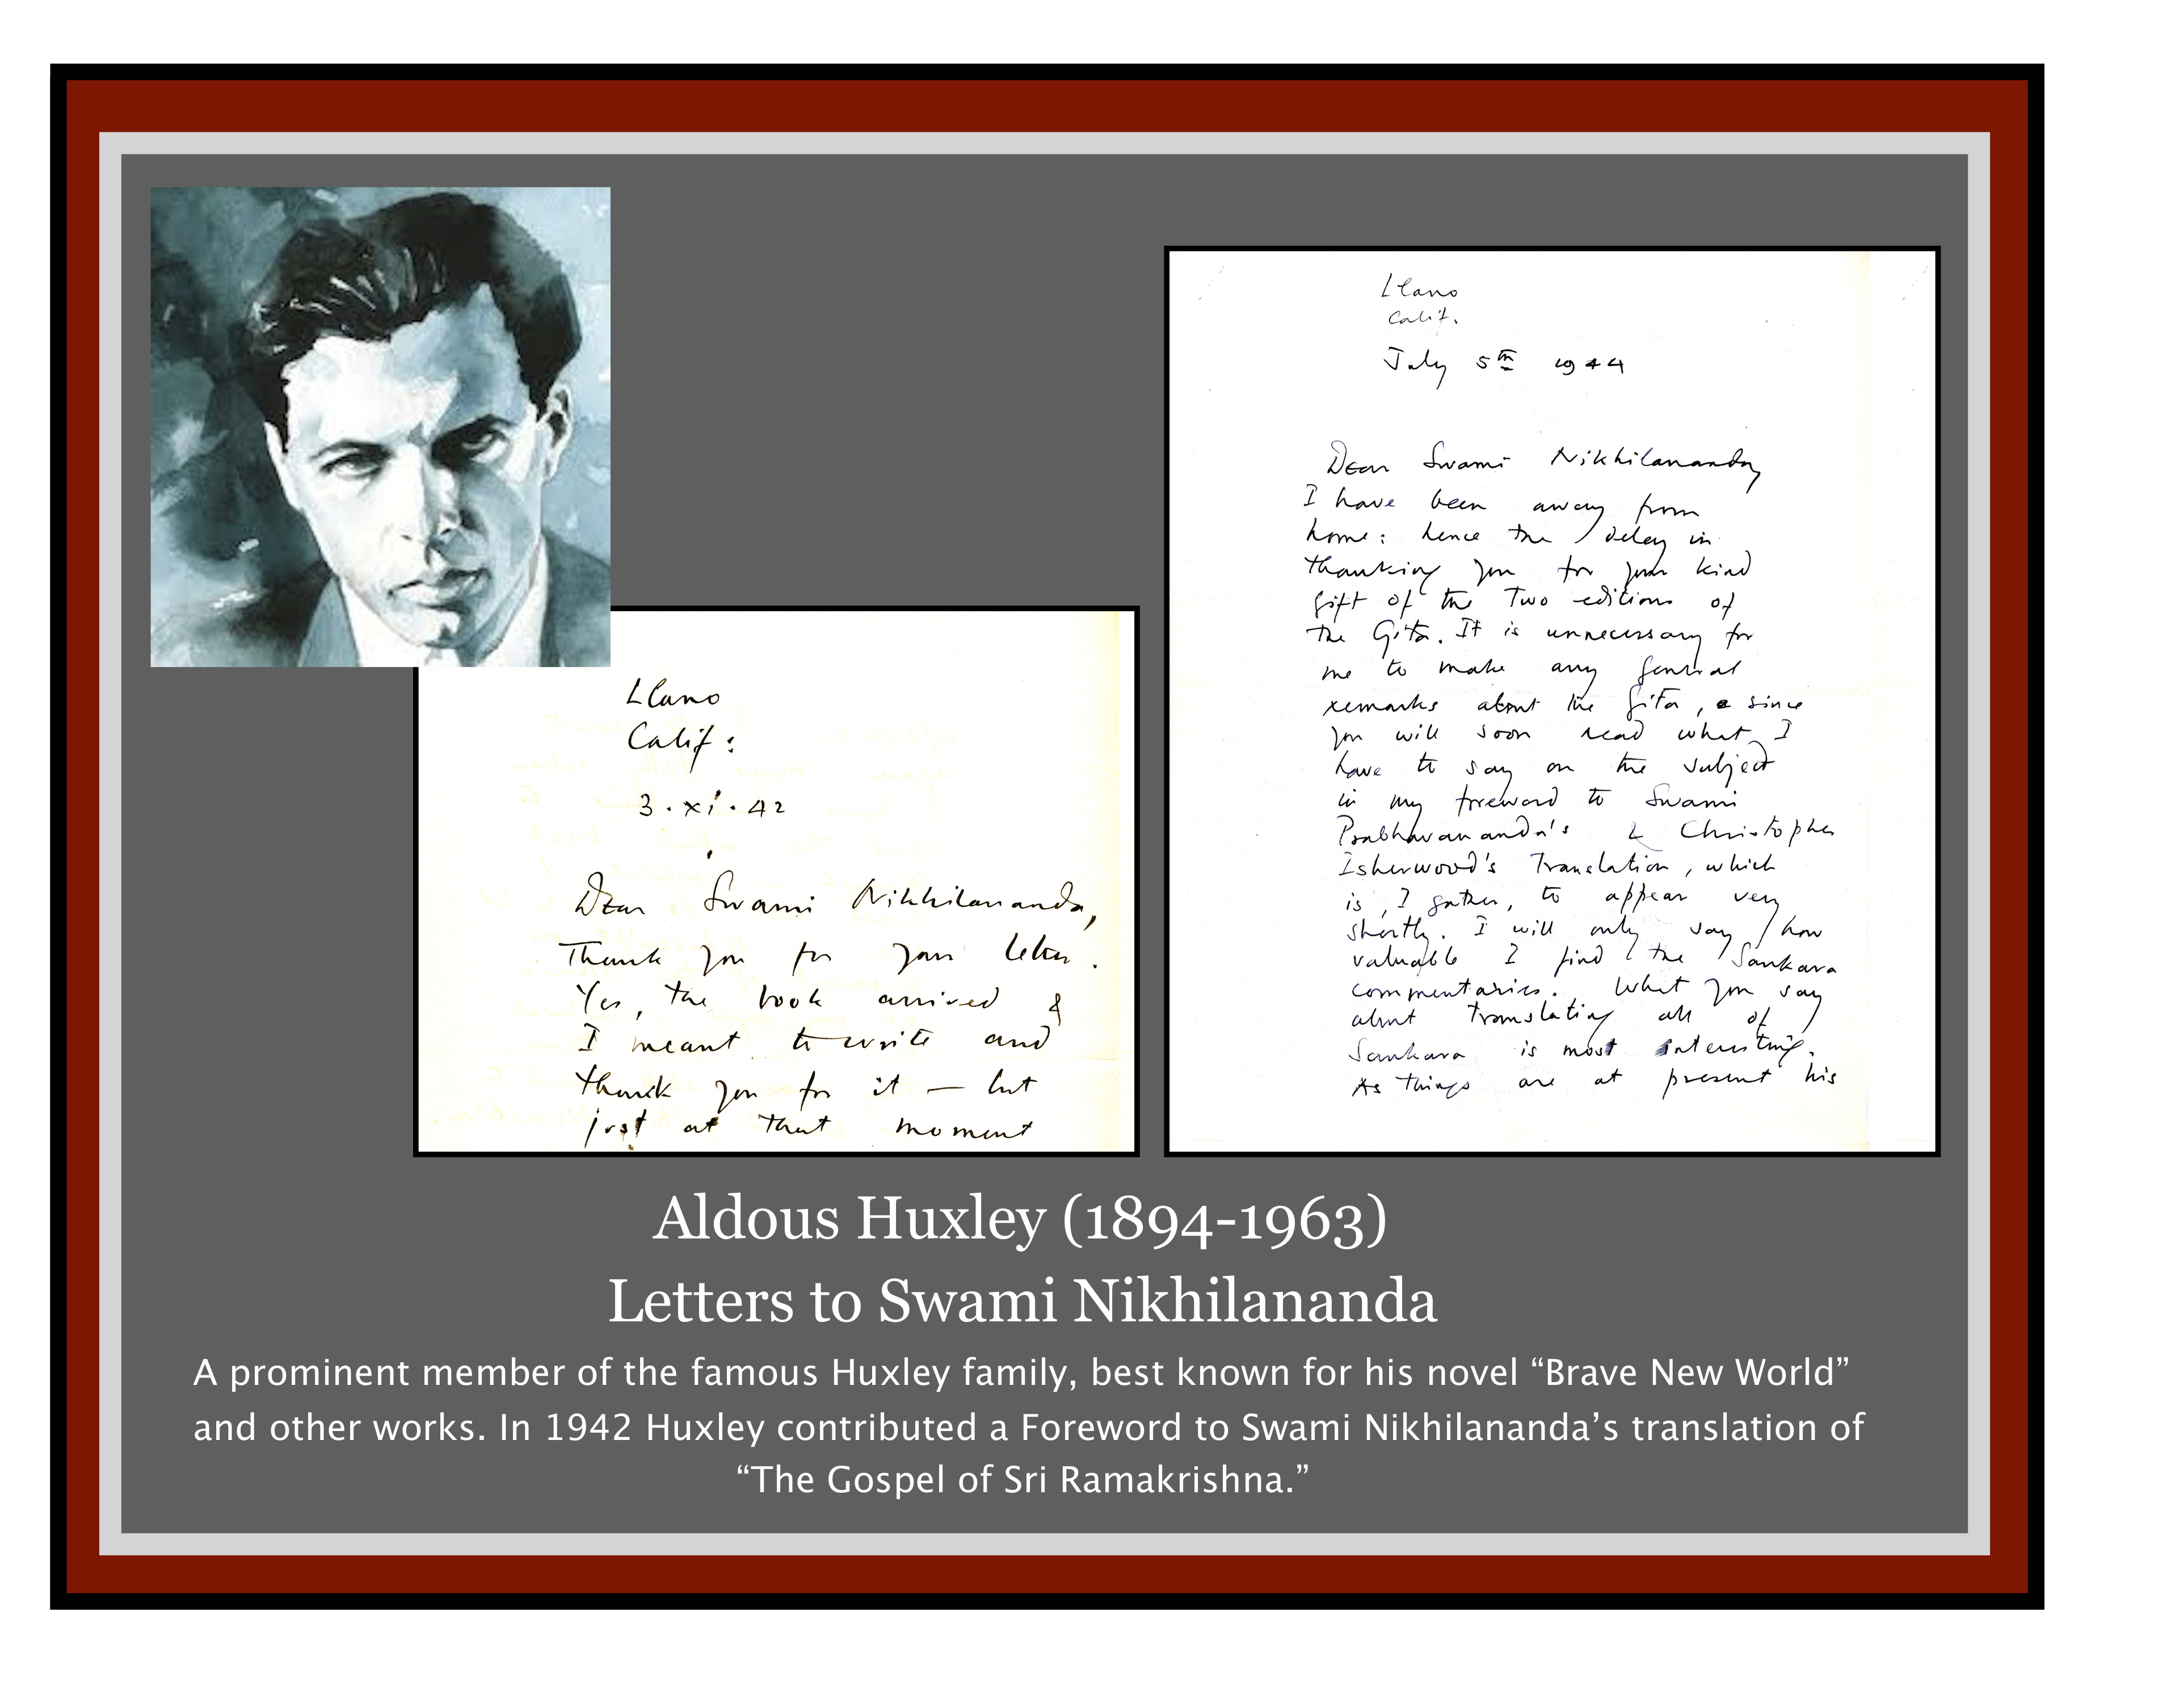 Llano
Calif:
3.xi.42
Dear Swami Nikhilananda,
Thank you for your letter.
Yes, the book arrived &
I meant to write and
thank you for it — but
just at that moment
Llano
Calif.
July 5th 1944
Dear Swami Nikhilananda,
I have been away from
home: hence the delay in
thanking you for your kind
gift of the two editions of
the Gita. It is unnecessary for
me to make any general
remarks about the Gita, since
you will soon read what I
have to say on the subject
in my foreword to Swami
Prabhavananda's & Christopher
Isherwood's Translation, which
is, I gather, to appear very
shortly. I will only say how
valuable I find the Sankara
commentaries. What you say
about translating all of
Sankara is most interesting.
As things are at present his
Aldous Huxley (1894-1963)
Letters to Swami Nikhilananda
A prominent member of the famous Huxley family, best known for his novel “Brave New World”
and other works. In 1942 Huxley contributed a Foreword to Swami Nikhilananda’s translation of
“The Gospel of Sri Ramakrishna.”